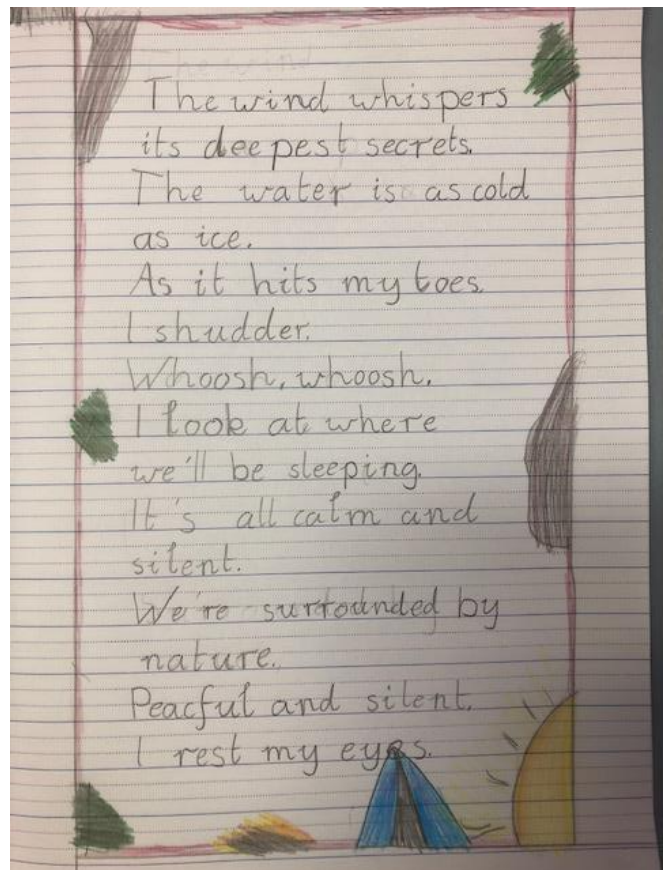 The wind
The wind whispers
its deepest secrets.
The water is as cold
as ice.
As it hits my toes.
I shudder.
Whoosh, whoosh.
I look at where
we'll be sleeping.
It's all calm and
silent.
We're surrounded by
nature.
Peacful and silent.
I rest my eyes.